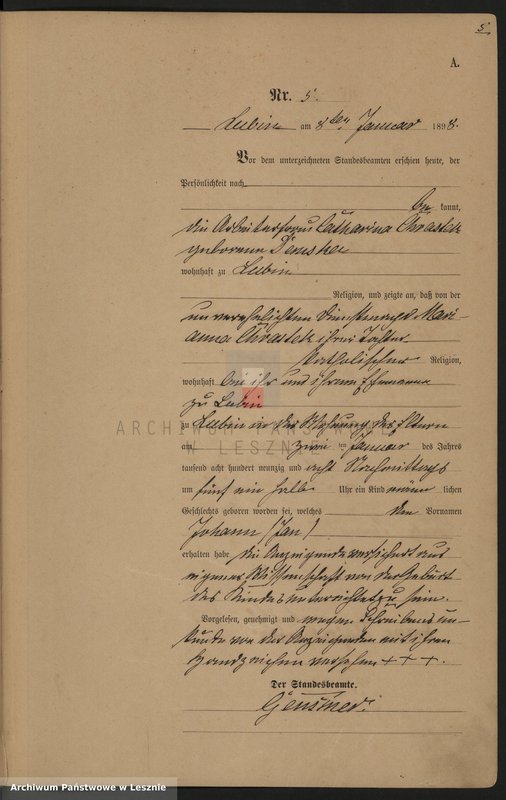 5
A.
Nr. 5.
Lubin am 8ten Januar 1898.
Vor dem unterzeichneten Standesbeamten erschien heute, der
Persönlichkeit nach
be kannt,
die Arbeiterfrau Catharina Chrastek
geborene
wohnhaft zu Lubin
Religion, und zeigte an, daß von der
unverehelichten Dienstmagd Mari-
anna Chrastek ihrer Tochter
katholischer Religion,
wohnhaft bei ihr und ihrem Ehemanne
zu Lubin
zu Lubin in der Wohnung der Eltern
am zwei ten Januar des Jahres
tausend acht hundert neunzig und acht Nachmittags
um fünf ein halb Uhr ein Kind männ lichen
Geschlechts geboren worden sei, welches den Vornamen
Johann (Jan)
erhalten habe die Anzeigende versichert aus
eigener Wissenschaft von der Geburt
des Kindes unterrichtet zu sein.
Vorgelesen, genehmigt und wegen Schreibensun-
kunde von der Anzeigenden mit ihrem
Handzeichen versehen + + +.
Der Standesbeamte.
ARCHIWUM PAŃSTWOWE
W LESZNIE
Archiwum Państwowe w Lesznie